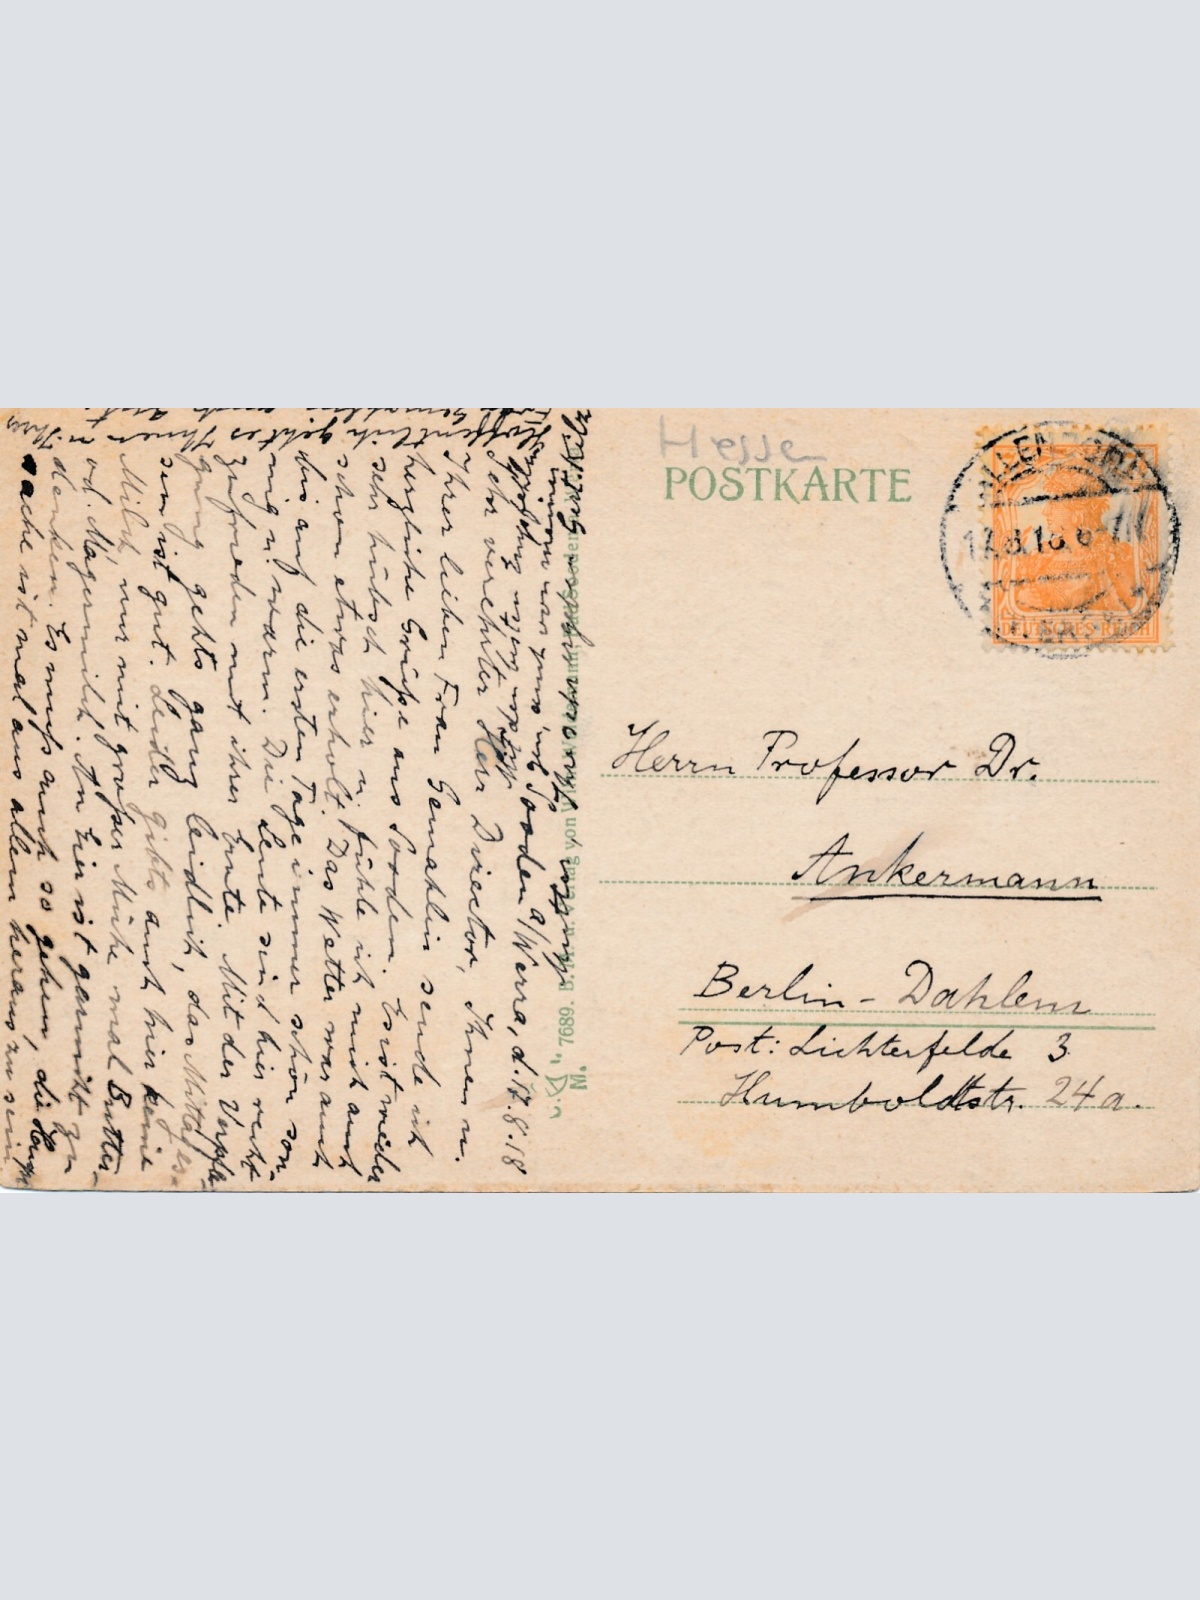 Hesse
POSTKARTE
17.8.18.6-7
DEUTSCHES REICH
Herrn Professor Dr.
Ankermann
Berlin-Dahlem
Post: Lichterfelde 3
Humboldtstr. 24a.
Sooden a/Werra, d. 17.8.18
Sehr verehrter Herr Director, Ihnen u.
Ihrer lieben Frau Gemahlin sende ich
herzliche Grüße aus Sooden. Es ist wieder
sehr hübsch hier u. fühle ich mich auch
schon etwas erholt. Das Wetter war auch
bis auf die ersten Tage immer schön son-
nig u. warm. Die Leute sind hier recht
zufrieden mit ihrer Ernte. Mit der Verpfle-
gung gehts ganz leidlich, das Mittages-
sen ist gut. Leider gibts auch hier keine
Milch, nur mit großer Mühe mal Butter-
od. Magermilch. An Eier ist garnicht zu
denken. Es muß auch so gehen, die Haupt
sache ist mal aus allem heraus zu sein
Hoffentlich geht es Ihnen u. Ihrer
7689. Verlag von
M.